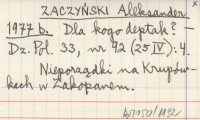 ZACZYŃSKI Aleksander
1977 b. Dla kogo deptak? —
Dz. Pol. 33, nr 92 (25 IV): 4.
Nieporządki na Krupów-
kach w Zakopanem.